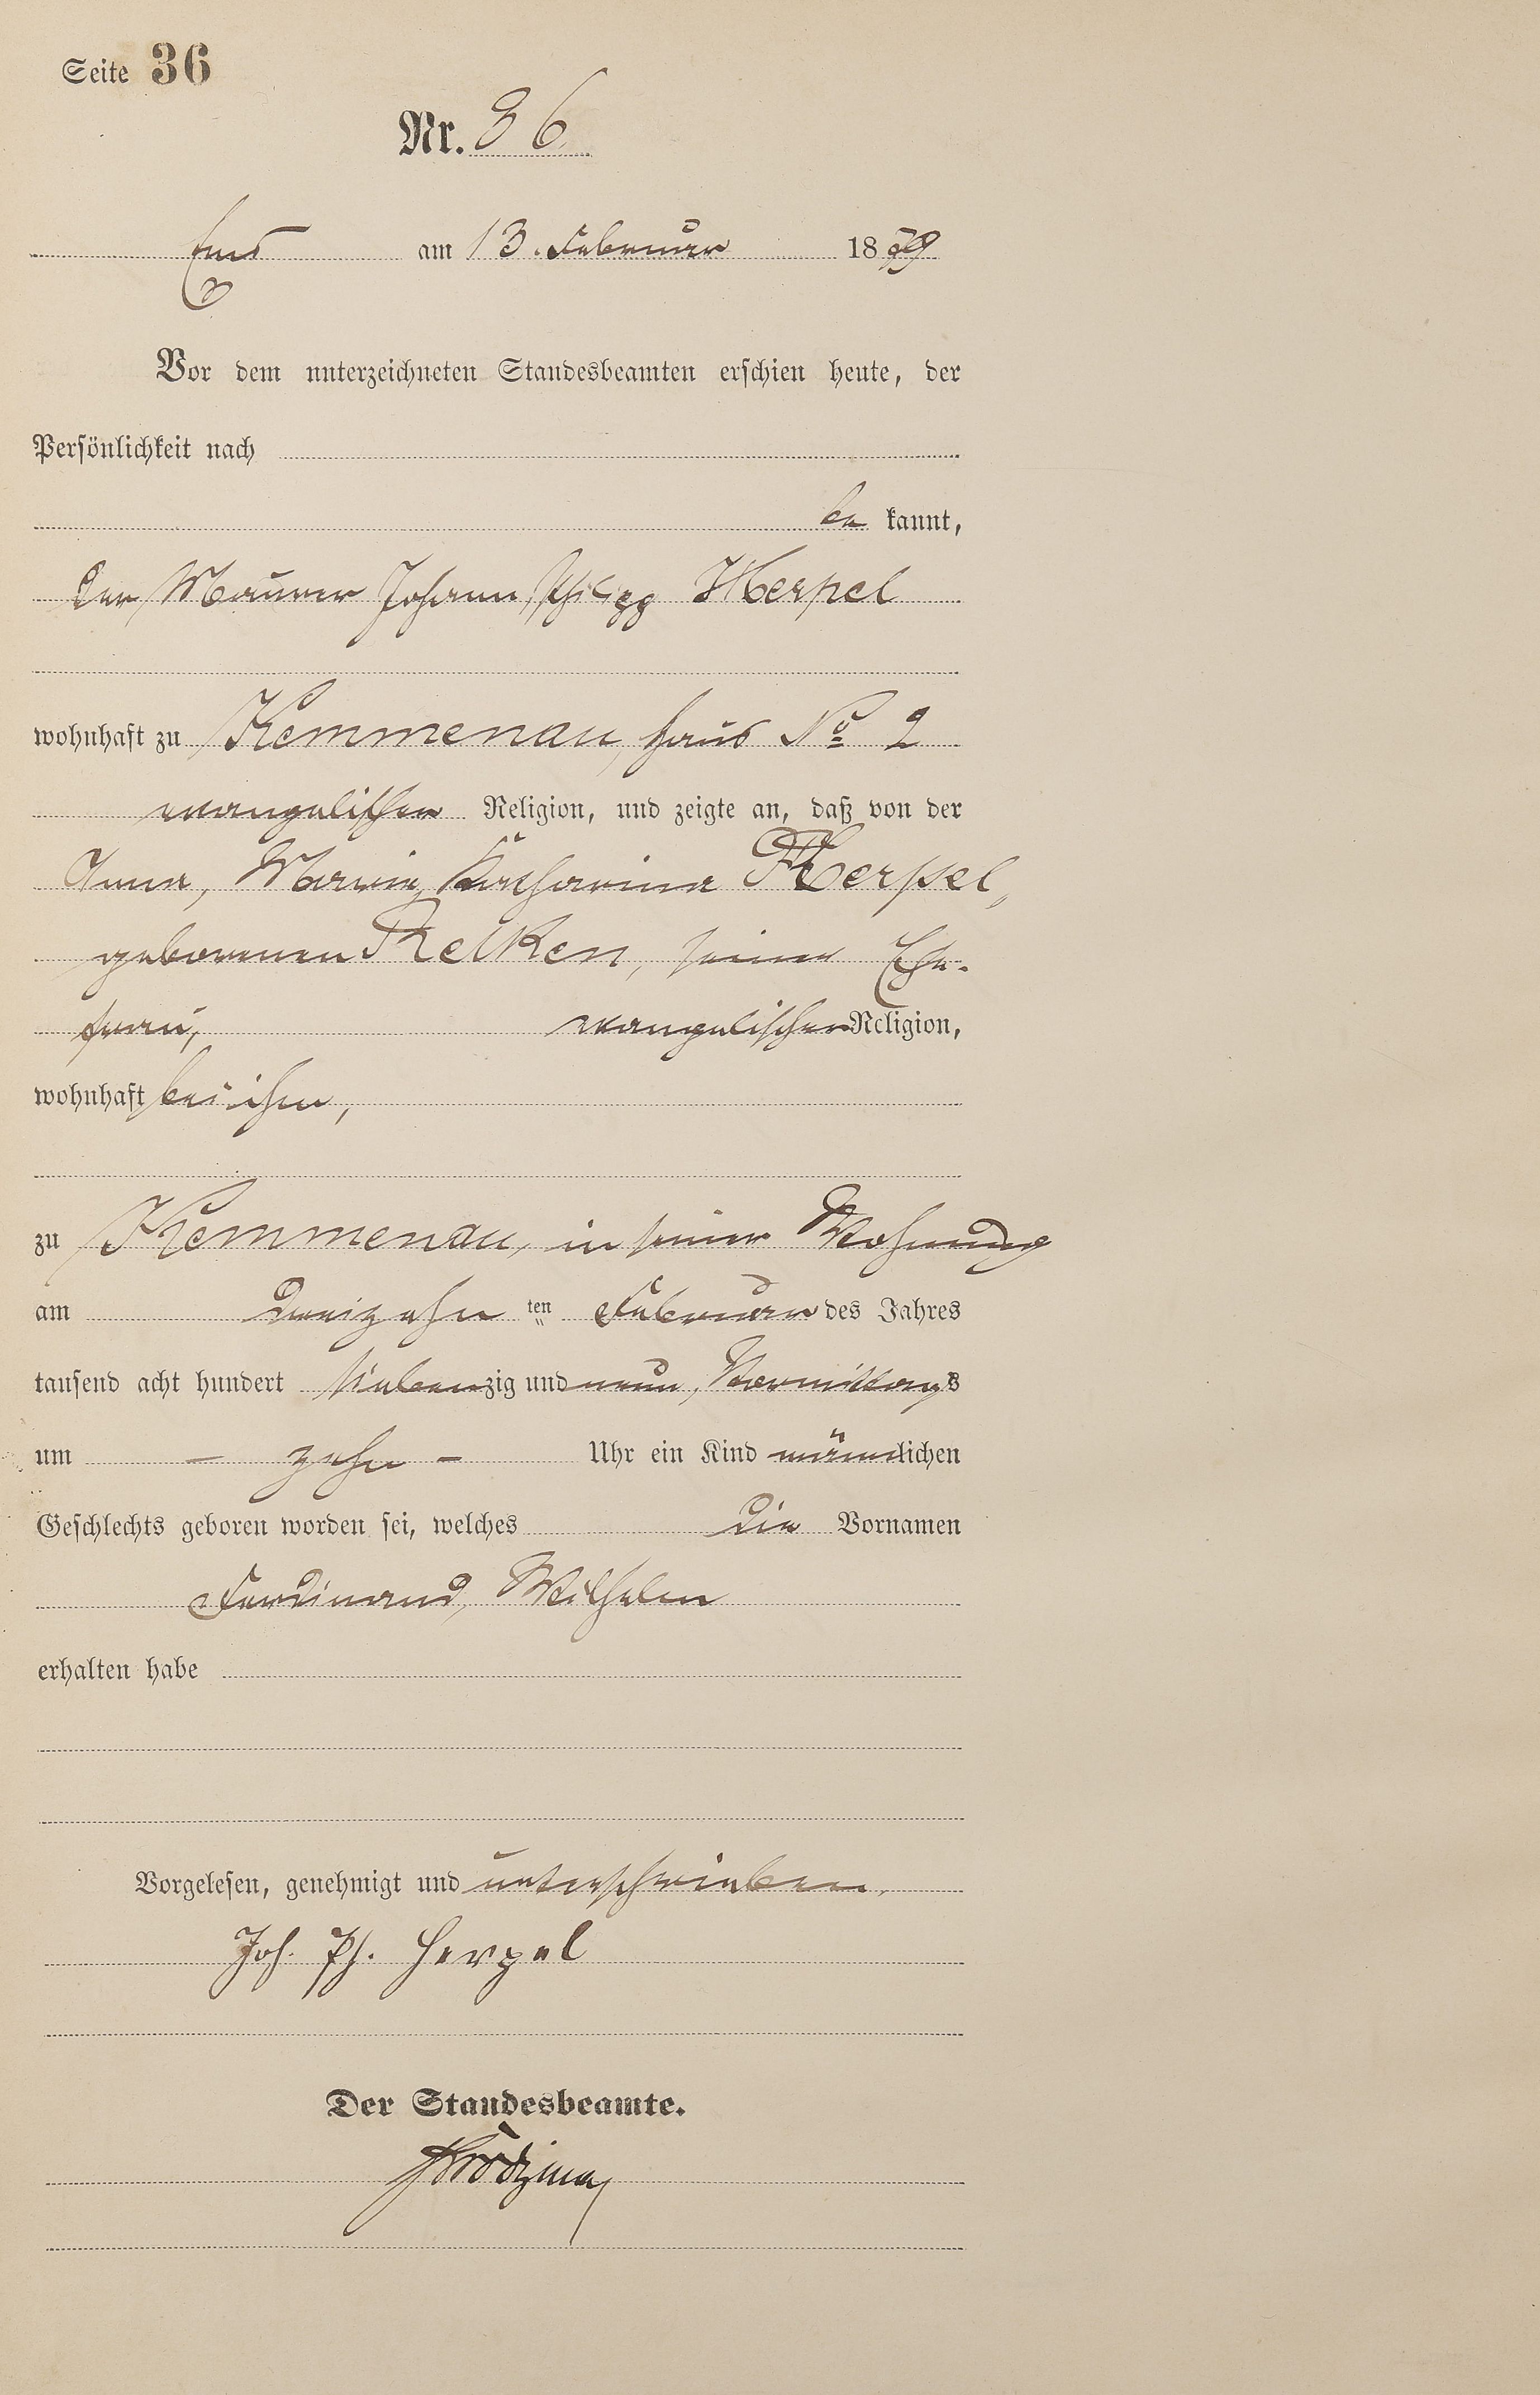 Seite 36
Nr. 36
Ems am 13. Februar 1879
Vor dem unterzeichneten Standesbeamten erschien heute, der
Persönlichkeit nach
be kannt,
der Maurer Johann, Philipp Herpel
wohnhaft zu Kemmenau, Haus No 2
evangelischer Religion, und zeigte an, daß von der
Anna, Maria, Katharina Herpel,
geborenen Relken, seiner Ehe-
frau, evangelischer Religion,
wohnhaft bei ihm,
zu Kemmenau, in seiner Wohnung
am dreizehn ten Februar des Jahres
tausend acht hundert siebenzig und neun, Vormittags
um – zehn – Uhr ein Kind männlichen
Geschlechts geboren worden sei, welches die Vornamen
Ferdinand, Wilhelm
erhalten habe
Vorgelesen, genehmigt und unterschrieben.
Joh. Ph. Herpel
Der Standesbeamte.